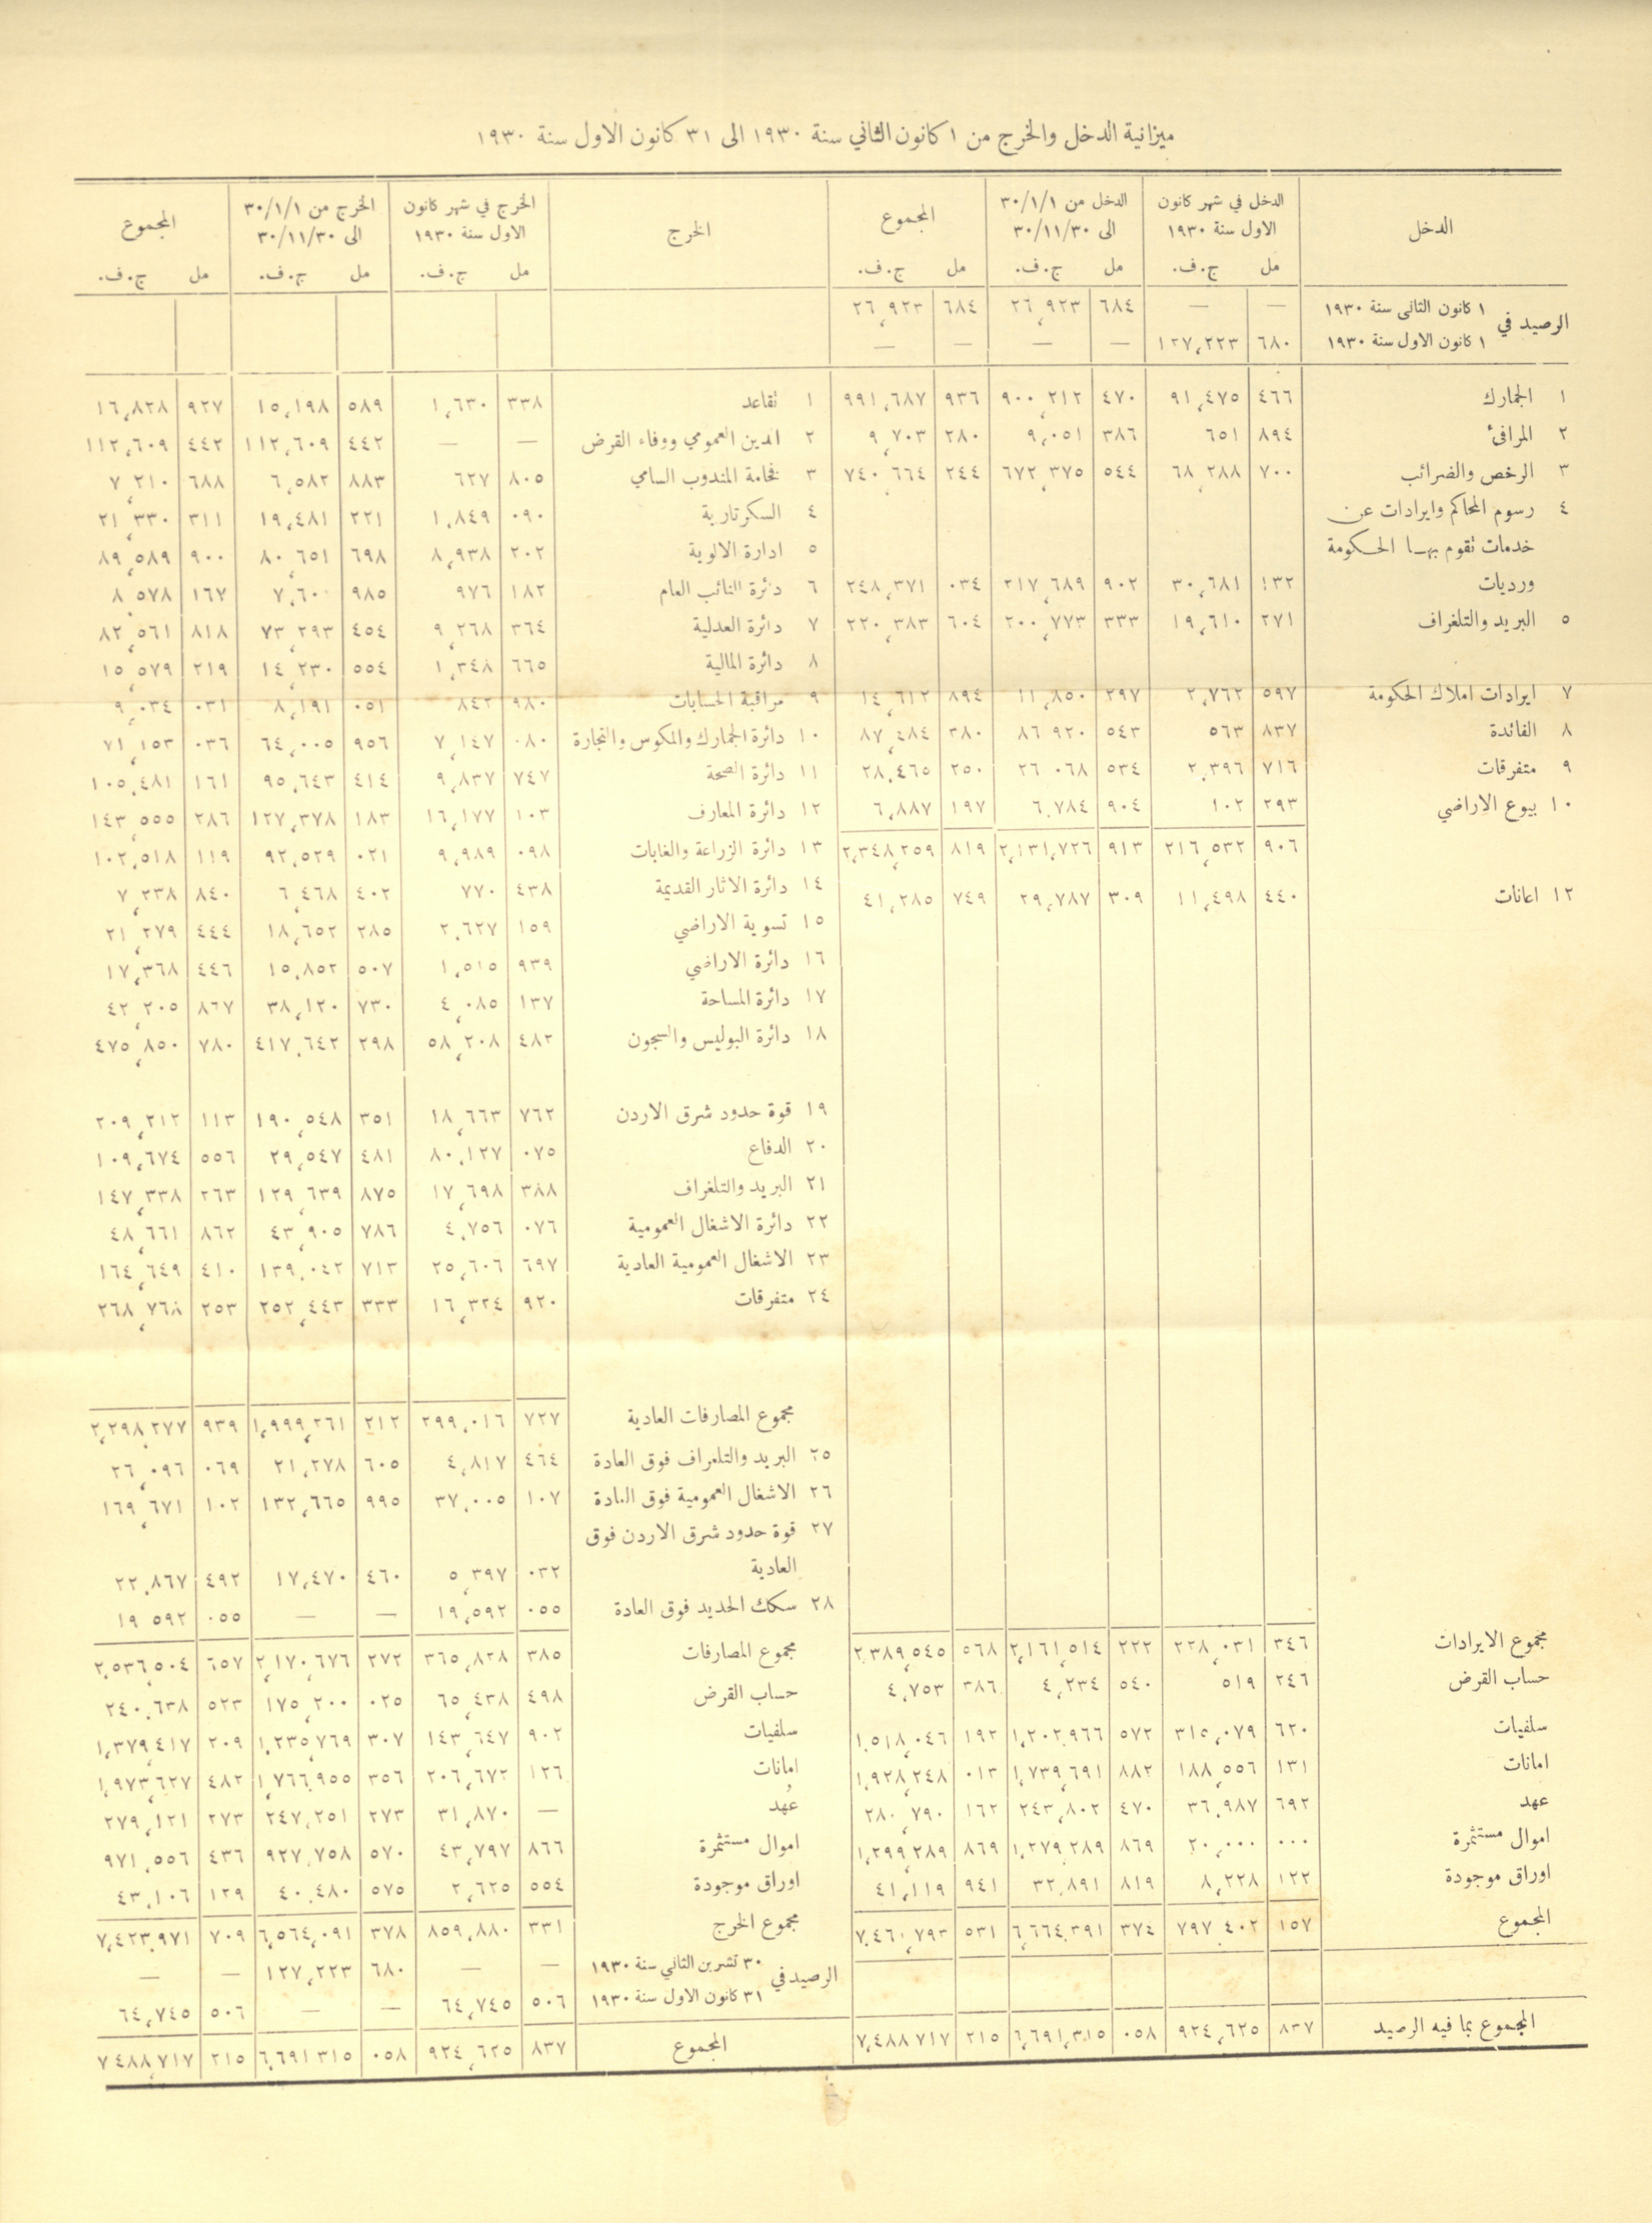 ميزانية الدخل والخرج من ١ كانون الثاني سنة ١٩٣٠ الى ٣١ كانون الاول سنة ١٩٣٠
الدخل
الدخل في شهر كانون
الاول سنة ١٩٣٠
مل ج.ف.
الدخل من ٣٠/١/١
الى ٣٠/١١/٣٠
مل ج.ف.
المجموع
مل ج.ف.
الرصيد في
١ كانون الثاني سنة ١٩٣٠ — — ٦٨٤ ٢٦,٩٢٣ ٦٨٤ ٢٦,٩٢٣
١ كانون الاول سنة ١٩٣٠ ٦٨٠ ١٢٧,٢٢٣ — — — —
١ الجمارك ٤٦٦ ٩١,٤٧٥ ٤٧٠ ٩٠٠,٢١٢ ٩٣٦ ٩٩١,٦٨٧
٢ المرافئ ٨٩٤ ٦٥١ ٣٨٦ ٩,٠٥١ ٢٨٠ ٩,٧٠٣
٣ الرخص والضرائب ٧٠٠ ٦٨,٢٨٨ ٥٤٤ ٦٧٢,٣٧٥ ٢٤٤ ٧٤٠,٦٦٤
٤ رسوم المحاكم وايرادات عن
خدمات تقوم بها الحكومة
ورديات ١٣٢ ٣٠,٦٨١ ٩٠٢ ٢١٧,٦٨٩ ٠٣٤ ٢٤٨,٣٧١
٥ البريد والتلغراف ٢٧١ ١٩,٦١٠ ٣٣٣ ٢٠٠,٧٧٣ ٦٠٤ ٢٢٠,٣٨٣
٧ ايرادات املاك الحكومة ٥٩٧ ٢,٧٦٢ ٢٩٧ ١١,٨٥٠ ٨٩٤ ١٤,٦١٢
٨ الفائدة ٨٣٧ ٥٦٣ ٥٤٣ ٨٦,٩٢٠ ٣٨٠ ٨٧,٤٨٤
٩ متفرقات ٧١٦ ٢,٣٩٦ ٥٣٤ ٢٦,٠٦٨ ٢٥٠ ٢٨,٤٦٥
١٠ بيوع الاراضي ٢٩٣ ١٠٢ ٩٠٤ ٦,٧٨٤ ١٩٧ ٦,٨٨٧
٩٠٦ ٢١٦,٥٣٢ ٩١٣ ٢,١٣١,٧٢٦ ٨١٩ ٢,٣٤٨,٢٥٩
١٢ اعانات ٤٤٠ ١١,٤٩٨ ٣٠٩ ٢٩,٧٨٧ ٧٤٩ ٤١,٢٨٥
مجموع الايرادات ٣٤٦ ٢٢٨,٠٣١ ٢٢٢ ٢,١٦١,٥١٤ ٥٦٨ ٢,٣٨٩,٥٤٥
حساب القرض ٢٤٦ ٥١٩ ٥٤٠ ٤,٢٣٤ ٧٨٦ ٤,٧٥٣
سلفيات ٦٢٠ ٣١٥,٠٧٩ ٥٧٢ ١,٢٠٢,٩٦٦ ١٩٢ ١,٥١٨,٠٤٦
امانات ١٣١ ١٨٨,٥٥٦ ٨٨٢ ١,٧٣٩,٦٩١ ٠١٣ ١,٩٢٨,٢٤٨
عهد ٦٩٢ ٣٦,٩٨٧ ٤٧٠ ٢٤٣,٨٠٢ ١٦٢ ٢٨٠,٧٩٠
اموال مستثمرة ٠٠٠ ٢٠,٠٠٠ ٨٦٩ ١,٢٧٩,٢٨٩ ٨٦٩ ١,٢٩٩,٢٨٩
اوراق موجودة ١٢٢ ٨,٢٢٨ ٨١٩ ٣٢,٨٩١ ٩٤١ ٤١,١١٩
المجموع ١٥٧ ٧٩٧,٤٠٢ ٣٧٤ ٦,٦٦٤,٣٩١ ٥٣١ ٧,٤٦١,٧٩٣
المجموع بما فيه الرصيد ٨٣٧ ٩٢٤,٦٢٥ ٠٥٨ ٦,٦٩١,٣١٥ ٢١٥ ٧,٤٨٨,٧١٧
الخرج
الخرج في شهر كانون
الاول سنة ١٩٣٠
مل ج.ف.
الخرج من ٣٠/١/١
الى ٣٠/١١/٣٠
مل ج.ف.
المجموع
مل ج.ف.
١ تقاعد ٣٣٨ ١,٦٣٠ ٥٨٩ ١٥,١٩٨ ٩٢٧ ١٦,٨٢٨
٢ الدين العمومي ووفاء القرض — — ٤٤٢ ١١٢,٦٠٩ ٤٤٢ ١١٢,٦٠٩
٣ فخامة المندوب السامي ٨٠٥ ٦٢٧ ٨٨٣ ٦,٥٨٢ ٦٨٨ ٧,٢١٠
٤ السكرتارية ٠٩٠ ١,٨٤٩ ٢٢١ ١٩,٤٨١ ٣١١ ٢١,٣٣٠
٥ ادارة الالوية ٢٠٢ ٨,٩٣٨ ٦٩٨ ٨٠,٦٥١ ٩٠٠ ٨٩,٥٨٩
٦ دائرة النائب العام ١٨٢ ٩٧٦ ٩٨٥ ٧,٦٠١ ١٦٧ ٨,٥٧٨
٧ دائرة العدلية ٣٦٤ ٩,٢٦٨ ٤٥٤ ٧٣,٢٩٣ ٨١٨ ٨٢,٥٦١
٨ دائرة المالية ٦٦٥ ١,٣٤٨ ٥٥٤ ١٤,٢٣٠ ٢١٩ ١٥,٥٧٩
٩ مراقبة الحسابات ٩٨٠ ٨٤٢ ٠٥١ ٨,١٩١ ٠٣١ ٩,٠٣٤
١٠ دائرة الجمارك والمكوس والتجارة ٠٨٠ ٧,١٤٧ ٩٥٦ ٦٤,٠٠٥ ٠٣٦ ٧١,١٥٣
١١ دائرة الصحة ٧٤٧ ٩,٨٣٧ ٤١٤ ٩٥,٦٤٣ ١٦١ ١٠٥,٤٨١
١٢ دائرة المعارف ١٠٣ ١٦,١٧٧ ١٨٣ ١٢٧,٣٧٨ ٢٨٦ ١٤٣,٥٥٥
١٣ دائرة الزراعة والغابات ٠٩٨ ٩,٩٨٩ ٠٢١ ٩٢,٥٢٩ ١١٩ ١٠٢,٥١٨
١٤ دائرة الاثار القديمة ٤٣٨ ٧٧٠ ٤٠٢ ٦,٤٦٨ ٨٤٠ ٧,٢٣٨
١٥ تسوية الاراضي ١٥٩ ٢,٦٢٧ ٢٨٥ ١٨,٦٥٢ ٤٤٤ ٢١,٢٧٩
١٦ دائرة الاراضي ٩٣٩ ١,٥١٥ ٥٠٧ ١٥,٨٥٢ ٤٤٦ ١٧,٣٦٨
١٧ دائرة المساحة ١٣٧ ٤,٠٨٥ ٧٣٠ ٣٨,١٢٠ ٨٦٧ ٤٢,٢٠٥
١٨ دائرة البوليس والسجون ٤٨٢ ٥٨,٢٠٨ ٢٩٨ ٤١٧,٦٤٢ ٧٨٠ ٤٧٥,٨٥٠
١٩ قوة حدود شرق الاردن ٧٦٢ ١٨,٦٦٣ ٣٥١ ١٩٠,٥٤٨ ١١٣ ٢٠٩,٢١٢
٢٠ الدفاع ٠٧٥ ٨٠,١٢٧ ٤٨١ ٢٩,٥٤٧ ٥٥٦ ١٠٩,٦٧٤
٢١ البريد والتلغراف ٣٨٨ ١٧,٦٩٨ ٨٧٥ ١٢٩,٦٣٩ ٢٦٣ ١٤٧,٣٣٨
٢٢ دائرة الاشغال العمومية ٠٧٦ ٤,٧٥٦ ٧٨٦ ٤٣,٩٠٥ ٨٦٢ ٤٨,٦٦١
٢٣ الاشغال العمومية العادية ٦٩٧ ٢٥,٦٠٦ ٧١٣ ١٣٩,٠٤٢ ٤١٠ ١٦٤,٦٤٩
٢٤ متفرقات ٩٢٠ ١٦,٣٢٤ ٣٣٣ ٢٥٢,٤٤٣ ٢٥٣ ٢٦٨,٧٦٨
مجموع المصارفات العادية ٧٢٧ ٢٩٩,٠١٦ ٢١٢ ١,٩٩٩,٢٦١ ٩٣٩ ٢,٢٩٨,٢٧٧
٢٥ البريد والتلغراف فوق العادة ٤٦٤ ٤,٨١٧ ٦٠٥ ٢١,٢٧٨ ٠٦٩ ٢٦,٠٩٦
٢٦ الاشغال العمومية فوق العادة ١٠٧ ٣٧,٠٠٥ ٩٩٥ ١٣٢,٦٦٥ ١٠٢ ١٦٩,٦٧١
٢٧ قوة حدود شرق الاردن فوق
العادية ٠٣٢ ٥,٣٩٧ ٤٦٠ ١٧,٤٧٠ ٤٩٢ ٢٢,٨٦٧
٢٨ سكك الحديد فوق العادة ٠٥٥ ١٩,٥٩٢ — — ٠٥٥ ١٩,٥٩٢
مجموع المصارفات ٣٨٥ ٣٦٥,٨٢٨ ٢٧٢ ٢,١٧٠,٦٧٦ ٦٥٧ ٢,٥٣٦,٥٠٤
حساب القرض ٤٩٨ ٦٥,٤٣٨ ٠٢٥ ١٧٥,٢٠٠ ٥٢٣ ٢٤٠,٦٣٨
سلفيات ٩٠٢ ١٤٣,٦٤٧ ٣٠٧ ١,٢٣٥,٧٦٩ ٢٠٩ ١,٣٧٩,٤١٧
امانات ١٢٦ ٢٠٦,٦٧٢ ٣٥٦ ١,٧٦٦,٩٥٥ ٤٨٢ ١,٩٧٣,٦٢٧
عهد — ٣١,٨٧٠ ٢٧٣ ٢٤٧,٢٥١ ٢٧٣ ٢٧٩,١٢١
اموال مستثمرة ٨٦٦ ٤٣,٧٩٧ ٥٧٠ ٩٢٧,٧٥٨ ٤٣٦ ٩٧١,٥٥٦
اوراق موجودة ٥٥٤ ٢,٦٢٥ ٥٧٥ ٤٠,٤٨٠ ١٢٩ ٤٣,١٠٦
مجموع الخرج ٣٣١ ٨٥٩,٨٨٠ ٣٧٨ ٦,٥٦٤,٠٩١ ٧٠٩ ٧,٤٢٣,٩٧١
الرصيد في
٣٠ تشرين الثاني سنة ١٩٣٠ — — ٦٨٠ ١٢٧,٢٢٣ — —
٣١ كانون الاول سنة ١٩٣٠ ٥٠٦ ٦٤,٧٤٥ — — ٥٠٦ ٦٤,٧٤٥
المجموع ٨٣٧ ٩٢٤,٦٢٥ ٠٥٨ ٦,٦٩١,٣١٥ ٢١٥ ٧,٤٨٨,٧١٧